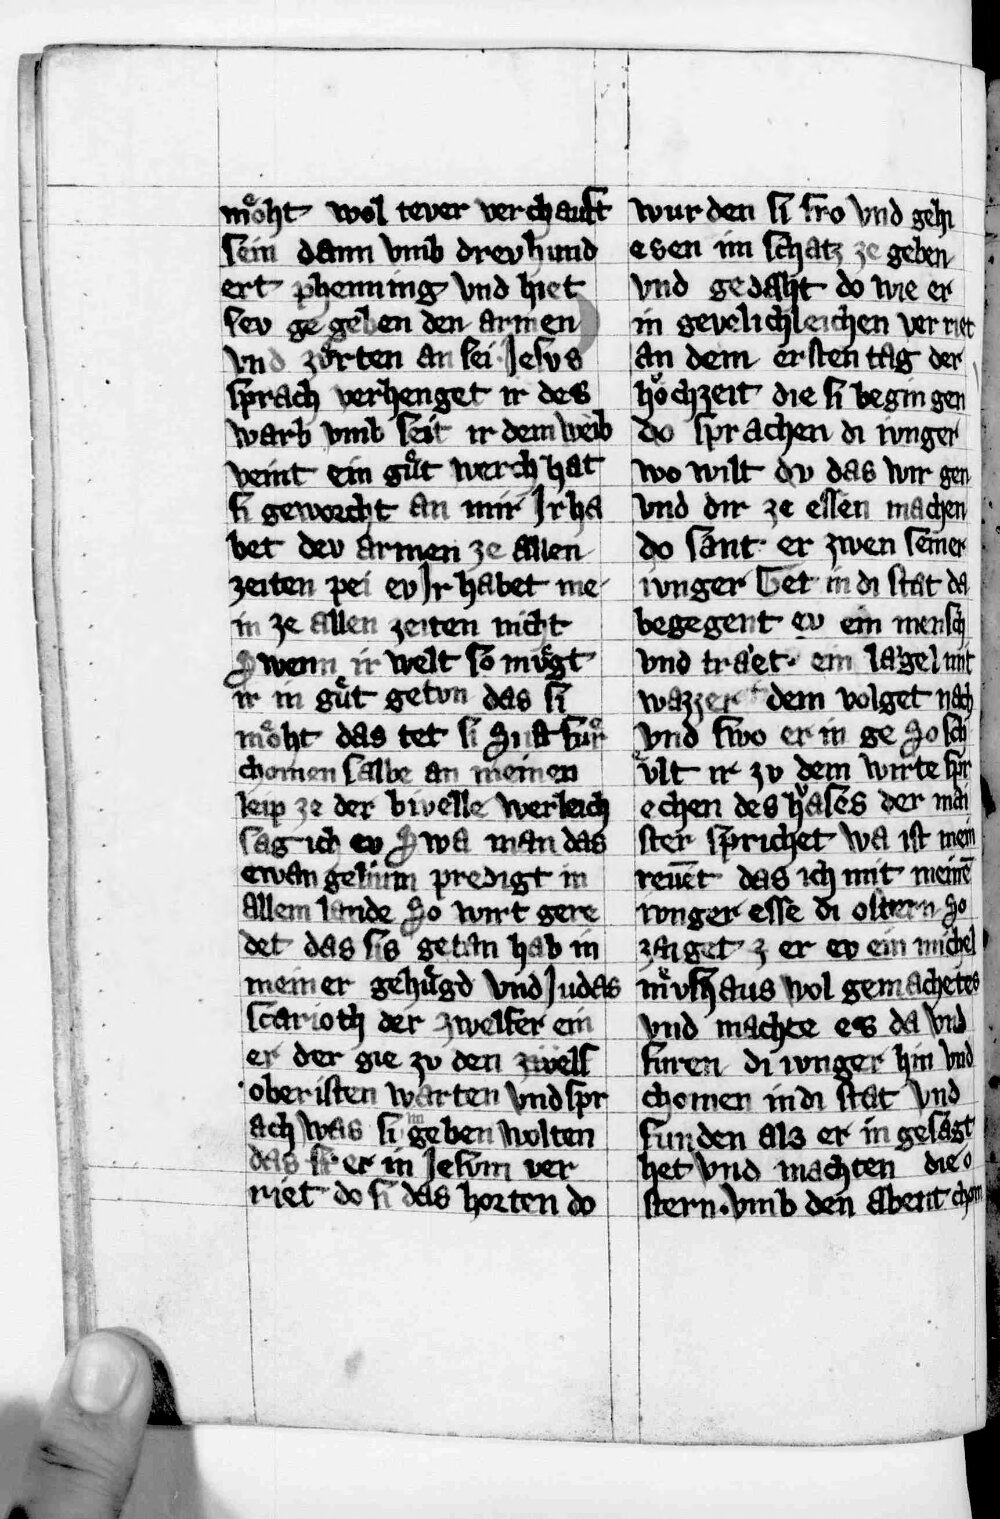 mͦoht wol tever verchauft
sein dann vmb drev hund
ert phenning vnd hiet
sev ge geben den armen
vnd zvͤrten an sei Jesvs
sprach verhenget ir des
warb vmb seit ir dem weib
veint ein guͤt werch hat
si geworcht an mir Jr ha
bet dev armen ze allen
zeiten pei ev Jr habet me
in ze allen zeiten nicht
Swenn ir welt so mvͤgt
ir in guͤt getvn das si
mͦoht das tet si Si ist fuͤr
chomen salbe an meinen
leip ze der bivelle werleich
sag ich ev Swa man das
ewangelium predigt in
allem lande So wirt gere
det das sis getan hab in
meiner gehuͤgd vnd Judas
scarioth der zwelfer ein
er der gie zv den zwelf
oberisten warten vnd spr
ach was si im geben wolten
das er in Jesvm ver
riet do si das horten do
wurden si fro vnd gehi
esen im schatz ze geben
vnd gedaht do wie er
in gevelichleichen verriet
an dem ersten tag der
hochzeit die si begingen
do sprachen di ivnger
wo wilt dv das wir gen
vnd dir ze essen machen
do sant er zwen seiner
ivnger Get in di stat da
begegent ev ein mensch
vnd traet ein lagel mit
wazzer dem volget nach
vnd swo er in ge So sch
uͤlt ir zv dem wirte spr
echen des hͮases der mai
ster sprichet wa ist mein
reuēt das ich mit meinē
ivnger esse di ostern So
zaiget z er ev ein michel
muͤshaus wol gemachetes
vnd machte es da vnd
furen di ivnger hin vnd
chomen in di stat vnd
funden als er in gesagt
het vnd machten die o
stern. vmb den abent chom